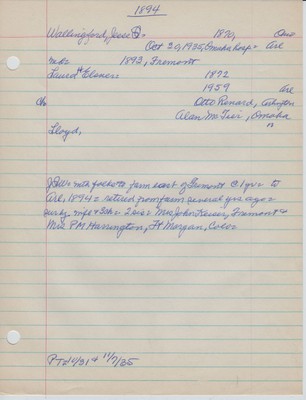 1894
Wallingford, Jesse B= 1870, Ono
Oct 30, 1935, Omaha hosp= Arl
m&z 1893, Fremont
Laura H Elsners 1872
1959 Arl
ch Otto Renard, Arlington
Alan McTier, Omaha
Lloyd,
with folks to farm east of Fremont to
Arl, 1894= retired from farm several yrs ago=
wife & 2 sis= Mrs John Fremont &
Mrs P M Harrington, Ft Morgan, Colo=
10/31 & 11/7/35